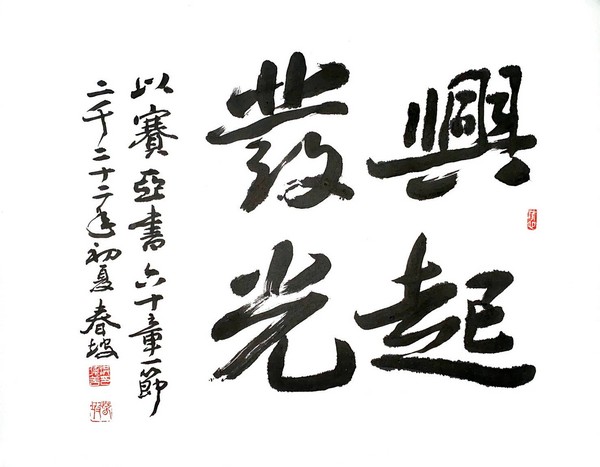 興起
發光
以賽亞書六十章一節
二千二十二年初夏 春坡